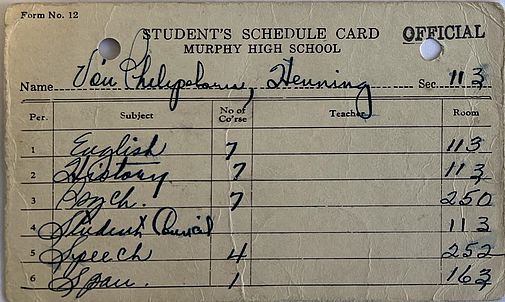 Form No. 12
STUDENT'S SCHEDULE CARD OFFICIAL
MURPHY HIGH SCHOOL
Name Von Henning Sec. 113
Per. Subject No of Co'rse Teacher Room
1 English 7 113
2 History 7 113
3 Psych. 7 250
4 Student Council 113
5 Speech 4 252
6 Span. 1 163